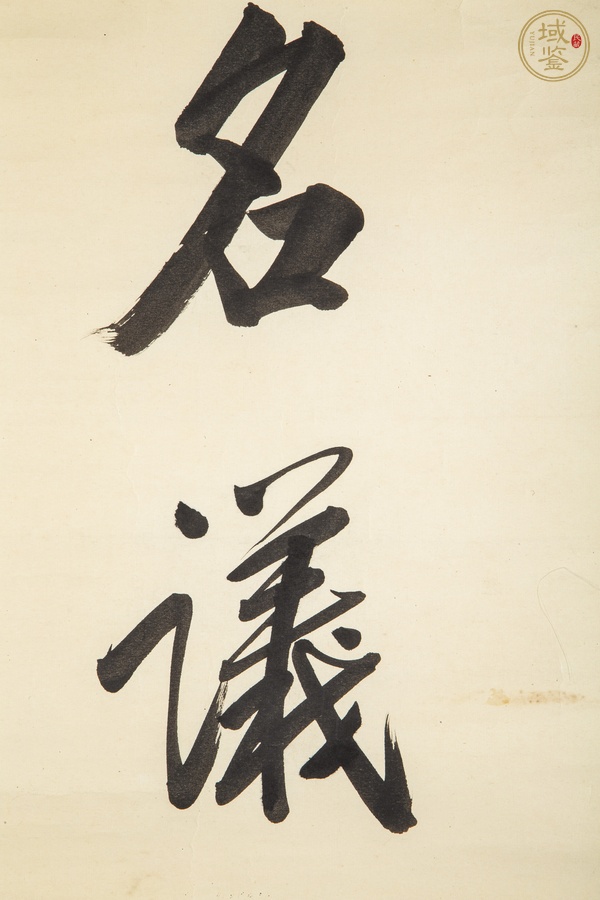 名
議
域鉴
YUJIAN